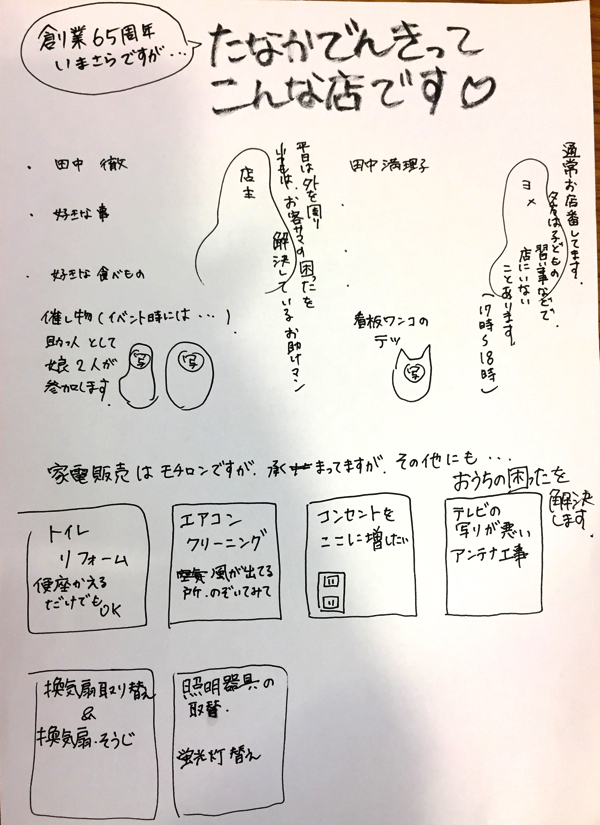 創業65周年
いまさらですが・・・
たなかでんきって
こんな店です♡
・ 田中 徹
・ 好きな事
・ 好きな食べもの
店主
平日は外を周り
お客サマの困ったを
解決している お助けマン
田中 満理子
ヨメ
通常お店番してます。
夕方は子どもの
習い事などで
店にいない
ことあります。
(17時〜18時)
催し物(イベント時には・・・)
助っ人として
娘2人が
参加します。
写
写
看板ワンコの
テツ
写
家電販売はモチロンですが、承まってますが、その他にも・・・
おうちの困ったを
解決
します。
トイレ
リフォーム
便座かえる
だけでもOK
エアコン
クリーニング
風が出てる
所、のぞいてみて
コンセントを
ここに増したい
テレビの
写りが悪い
アンテナ工事
換気扇取り替え
&
換気扇・そうじ
照明器具の
取替、
蛍光灯替え